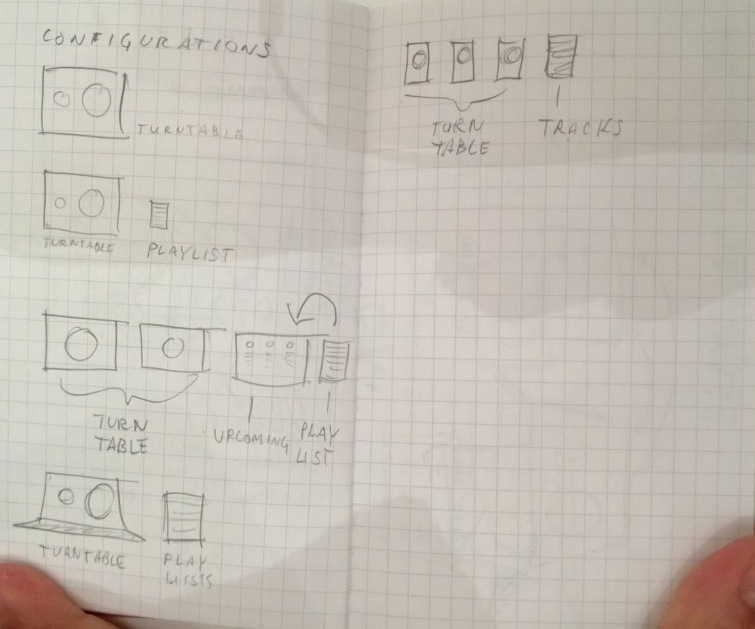 CONFIGURATIONS
TURNTABLE
TURNTABLE
PLAYLIST
TURN
TABLE
UPCOMING
PLAY
LIST
TURNTABLE
PLAY
LISTS
TURN
TABLE
TRACKS